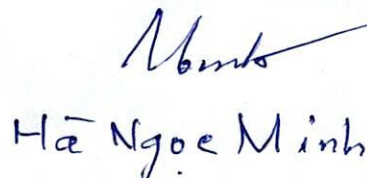 Minh
Hà Ngọc Minh